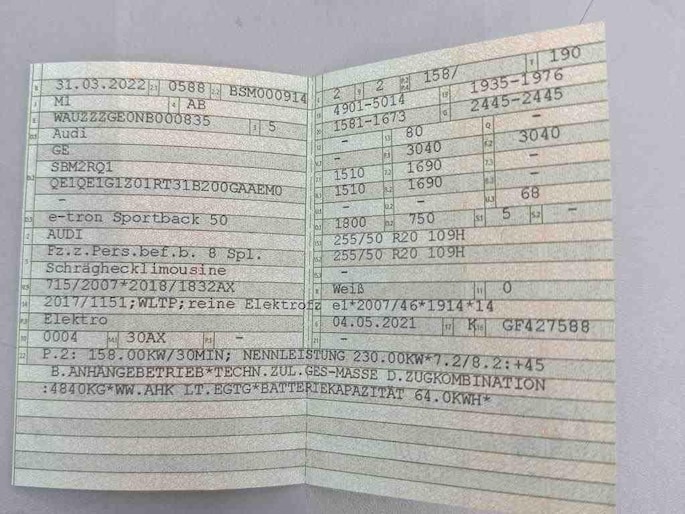 31.03.2022 0588 BSM000914
M1 AB
WAUZZZGE0NB000835 5
Audi
GE
SBM2RQ1
QE1QE1G1Z01RT31B200GAAEM0
-
e-tron Sportback 50
AUDI
Fz.z.Pers.bef.b. 8 Spl.
Schräghecklimousine
715/2007*2018/1832AX
2017/1151;WLTP;reine Elektrofz
Elektro
0004 30AX -
2 2 158/ 190
4901-5014 1935-1976
1581-1673 2445-2445
- 80 -
- 3040 3040
1510 1690 -
1510 1690 -
- - 68
1800 750 5 -
255/50 R20 109H
255/50 R20 109H
-
Weiß 0
e1*2007/46*1914*14
04.05.2021 K GF427588
- -
P.2: 158.00KW/30MIN; NENNLEISTUNG 230.00KW*7.2/8.2:+45
B.ANHÄNGEBETRIEB*TECHN.ZUL.GES-MASSE D.ZUGKOMBINATION
:4840KG*WW.AHK LT.EGTG*BATTERIEKAPAZITÄT 64.0KWH*